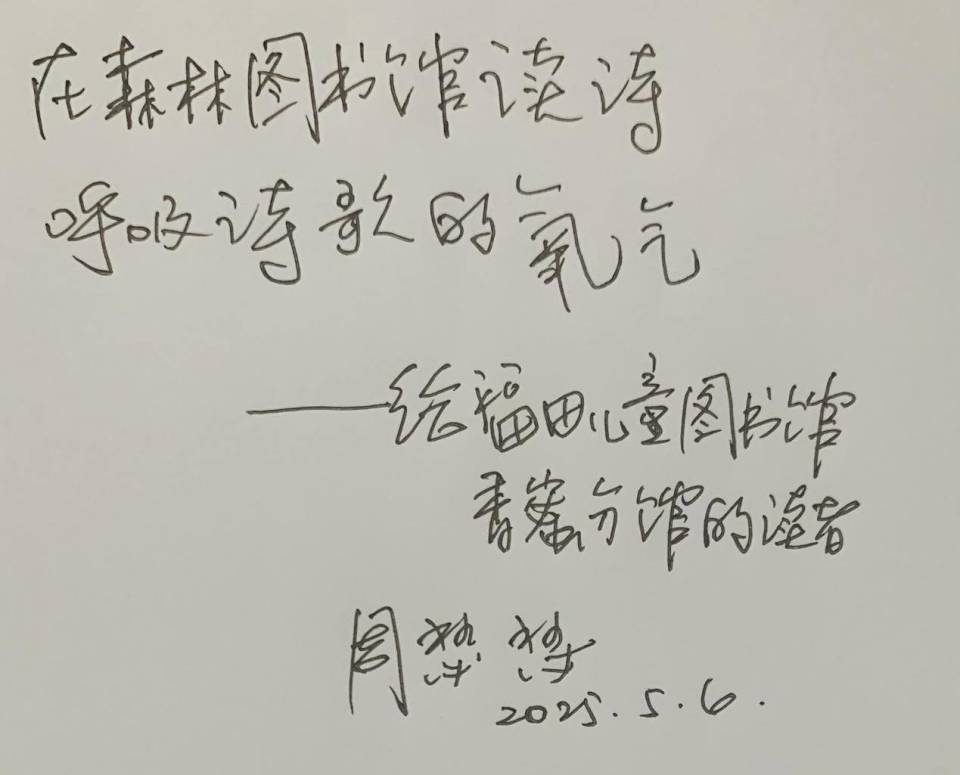 在森林图书馆读诗
呼吸诗歌的氧气
——给福田儿童图书馆
香蜜分馆的读者
周 
2025.5.6.